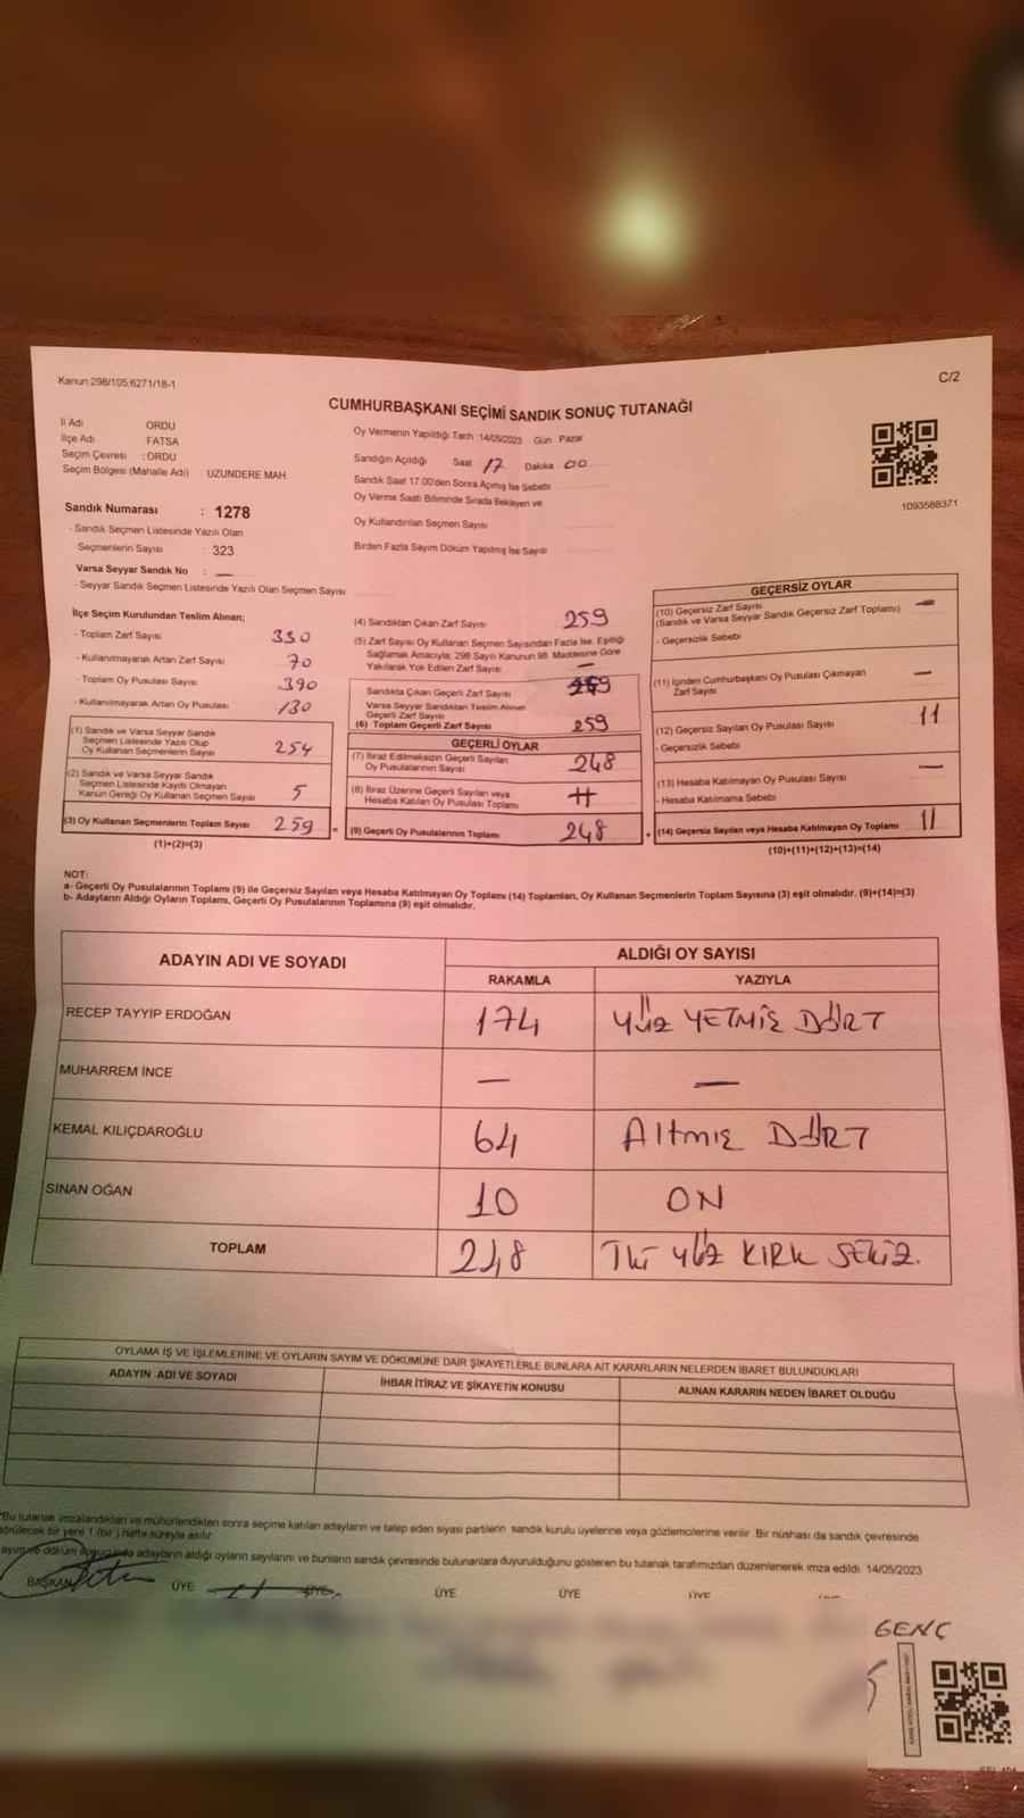 Kanun 298/105,6271/18-1
C/2
CUMHURBAŞKANI SEÇİMİ SANDIK SONUÇ TUTANAĞI
İl Adı ORDU
İlçe Adı FATSA
Seçim Çevresi : ORDU
Seçim Bölgesi (Mahalle Adı) UZUNDERE MAH
Oy Vermenin Yapıldığı Tarih 14/05/2023 Gün Pazar
Sandığın Açıldığı Saat 17 Dakika 00
Sandık Saat 17.00'den Sonra Açılmış İse Sebebi
Oy Verme Saati Bitiminde Sırada Bekleyen ve
Oy Kullandırılan Seçmen Sayısı
Birden Fazla Sayım Döküm Yapılmış İse Sayısı
1093588371
Sandık Numarası : 1278
- Sandık Seçmen Listesinde Yazılı Olan
Seçmenlerin Sayısı : 323
Varsa Seyyar Sandık No : —
- Seyyar Sandık Seçmen Listesinde Yazılı Olan Seçmen Sayısı
İlçe Seçim Kurulundan Teslim Alınan;
- Toplam Zarf Sayısı 330
- Kullanılmayarak Artan Zarf Sayısı 70
- Toplam Oy Pusulası Sayısı 390
- Kullanılmayarak Artan Oy Pusulası 130
(1) Sandık ve Varsa Seyyar Sandık
Seçmen Listesinde Yazılı Olup
Oy Kullanan Seçmenlerin Sayısı 254
(2) Sandık ve Varsa Seyyar Sandık
Seçmen Listesinde Kayıtlı Olmayan
Kanun Gereği Oy Kullanan Seçmen Sayısı 5
(3) Oy Kullanan Seçmenlerin Toplam Sayısı 259
(1)+(2)=(3)
(4) Sandıktan Çıkan Zarf Sayısı 259
(5) Zarf Sayısı Oy Kullanan Seçmen Sayısından Fazla İse, Eşitliği
Sağlamak Amacıyla; 298 Sayılı Kanunun 98. Maddesine Göre
Yakılarak Yok Edilen Zarf Sayısı —
Sandıkta Çıkan Geçerli Zarf Sayısı 259
Varsa Seyyar Sandıktan Teslim Alınan
Geçerli Zarf Sayısı
(6) Toplam Geçerli Zarf Sayısı 259
GEÇERLİ OYLAR
(7) İtiraz Edilmeksizin Geçerli Sayılan
Oy Pusulalarının Sayısı 248
(8) İtiraz Üzerine Geçerli Sayılan veya
Hesaba Katılan Oy Pusulası Toplamı
(9) Geçerli Oy Pusulalarının Toplamı 248
GEÇERSİZ OYLAR
(10) Geçersiz Zarf Sayısı —
(Sandık ve Varsa Seyyar Sandık Geçersiz Zarf Toplamı)
- Geçersizlik Sebebi
(11) İçinden Cumhurbaşkanı Oy Pusulası Çıkmayan —
Zarf Sayısı
(12) Geçersiz Sayılan Oy Pusulası Sayısı 11
- Geçersizlik Sebebi
(13) Hesaba Katılmayan Oy Pusulası Sayısı —
- Hesaba Katılmama Sebebi
(14) Geçersiz Sayılan veya Hesaba Katılmayan Oy Toplamı 11
(10)+(11)+(12)+(13)=(14)
NOT:
a- Geçerli Oy Pusulalarının Toplamı (9) ile Geçersiz Sayılan veya Hesaba Katılmayan Oy Toplamı (14) Toplamları, Oy Kullanan Seçmenlerin Toplam Sayısına (3) eşit olmalıdır. (9)+(14)=(3)
b- Adayların Aldığı Oyların Toplamı, Geçerli Oy Pusulalarının Toplamına (9) eşit olmalıdır.
ADAYIN ADI VE SOYADI ALDIĞI OY SAYISI
RAKAMLA YAZIYLA
RECEP TAYYİP ERDOĞAN 174 YÜZ YETMİŞ DÖRT
MUHARREM İNCE — —
KEMAL KILIÇDAROĞLU 64 ALTMIŞ DÖRT
SİNAN OĞAN 10 ON
TOPLAM 248 İKİ YÜZ KIRK SEKİZ.
OYLAMA İŞ VE İŞLEMLERİNE VE OYLARIN SAYIM VE DÖKÜMÜNE DAİR ŞİKAYETLERLE BUNLARA AİT KARARLARIN NELERDEN İBARET BULUNDUKLARI
ADAYIN ADI VE SOYADI İHBAR İTİRAZ VE ŞİKAYETİN KONUSU ALINAN KARARIN NEDEN İBARET OLDUĞU
*Bu tutanak imzalandıktan ve mühürlendikten sonra seçime katılan adayların ve talep eden siyasi partilerin sandık kurulu üyelerine veya gözlemcilerine verilir. Bir nüshası da sandık çevresinde
görülecek bir yere 1 (bir) hafta süreyle asılır
adayların aldığı oyların sayılarını ve bunların sandık çevresinde bulunanlara duyurulduğunu gösteren bu tutanak tarafımızdan düzenlenerek imza edildi. 14/05/2023
BAŞKAN ÜYE ÜYE ÜYE ÜYE ÜYE
GENÇ